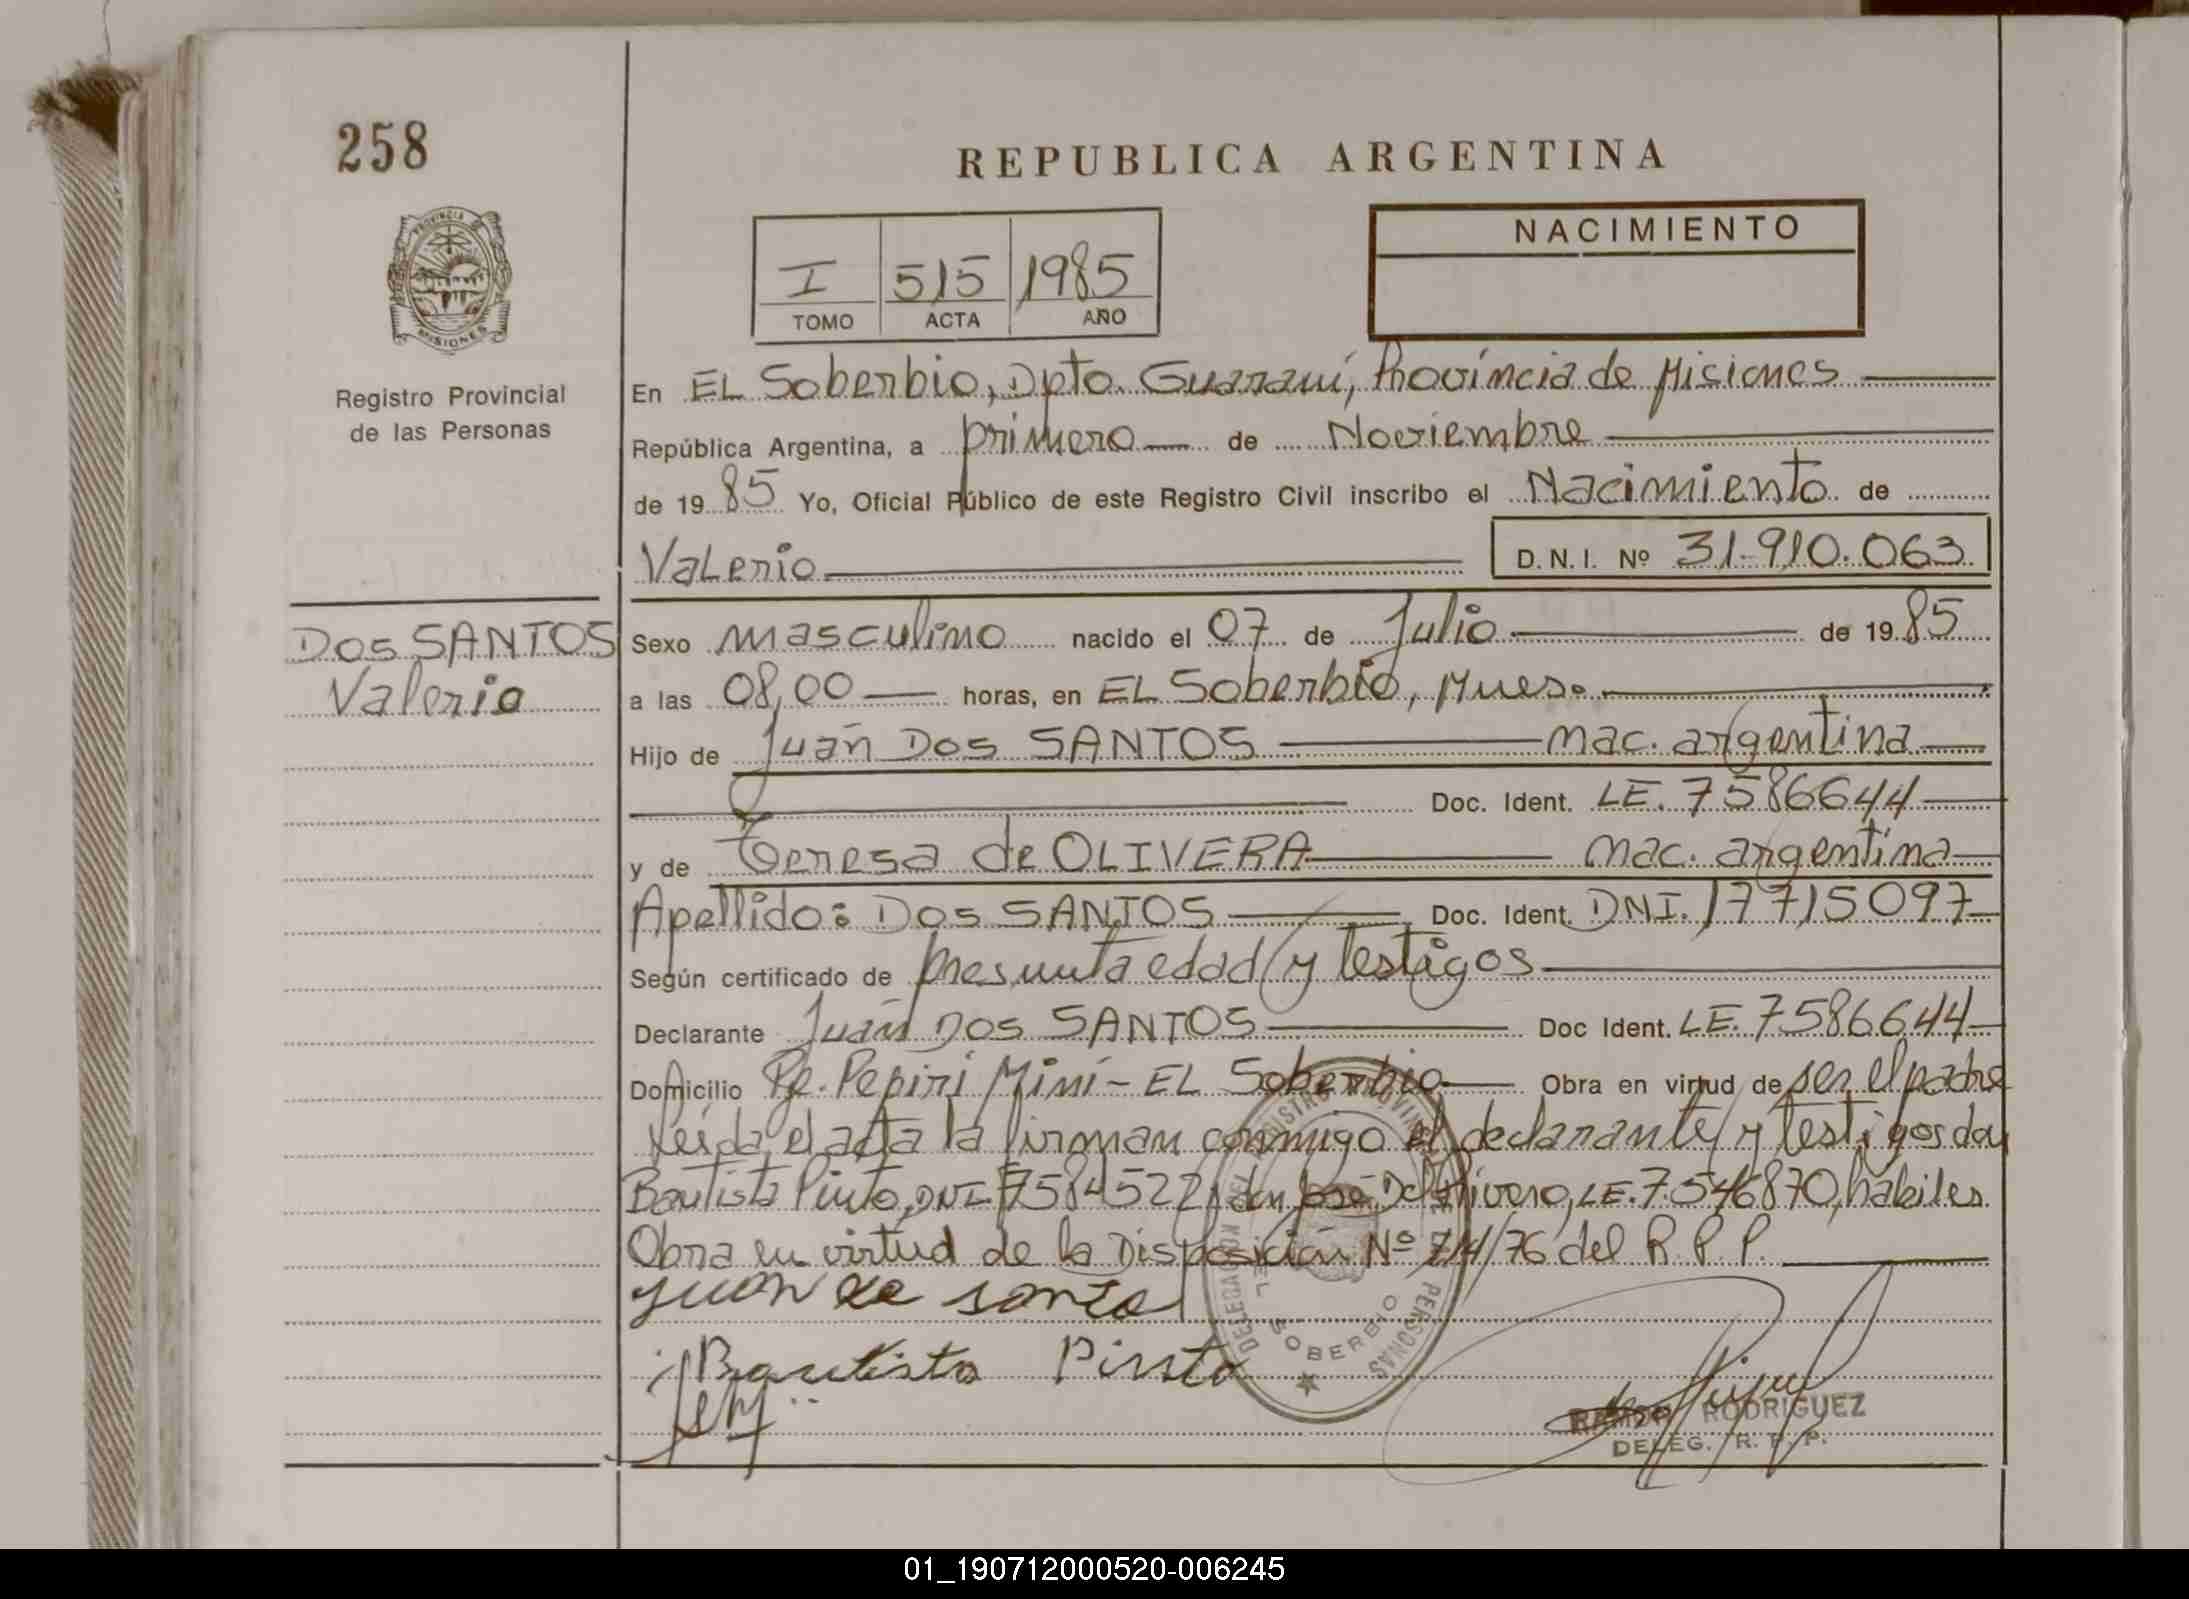 258
REPUBLICA ARGENTINA
PROVINCIA DE
MISIONES
Registro Provincial
de las Personas
NACIMIENTO
I 515 1985
TOMO ACTA AÑO
En EL Soberbio, Dpto. Guaraní, Província de Misiones
República Argentina, a primero de Noviembre
de 1985 Yo, Oficial Público de este Registro Civil inscribo el Nacimiento de
Valerio D.N.I. Nº 31.910.063
DOS SANTOS
Valerio
Sexo masculino nacido el 07 de Julio de 1985
a las 08,00 horas, en EL Soberbio, Mnes.
Hijo de Juán Dos SANTOS nac. argentina
Doc. Ident. LE. 7586644
y de Teresa de OLIVERA nac. argentina
Apellido: Dos SANTOS Doc. Ident. DNI. 17715097
Según certificado de presunta edad y testigos
Declarante Juán Dos SANTOS Doc Ident. LE. 7586644
Domicilio Pje. Pepirí Miní - EL Soberbio Obra en virtud de ser el padre
Leída el acta la firman conmigo el declarante y testigos don
Bautista Pinto, DNI 7584522 y don José Del Rivero, LE. 7.546870, habiles
Obra en virtud de la Disposición Nº 714/76 del R.P.P.
juan do santo
Bautista Pinto
DELEGACION DEL REGISTRO PROVINCIAL DE LAS PERSONAS
EL SOBERBIO
RAMON RODRIGUEZ
DELEG. R. P. P.
01_190712000520-006245